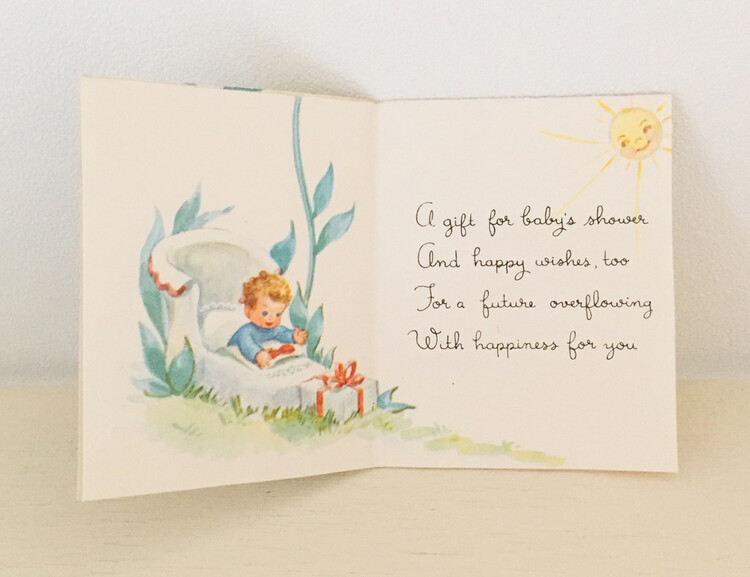 A gift for baby's shower
And happy wishes, too
For a future overflowing
With happiness for you